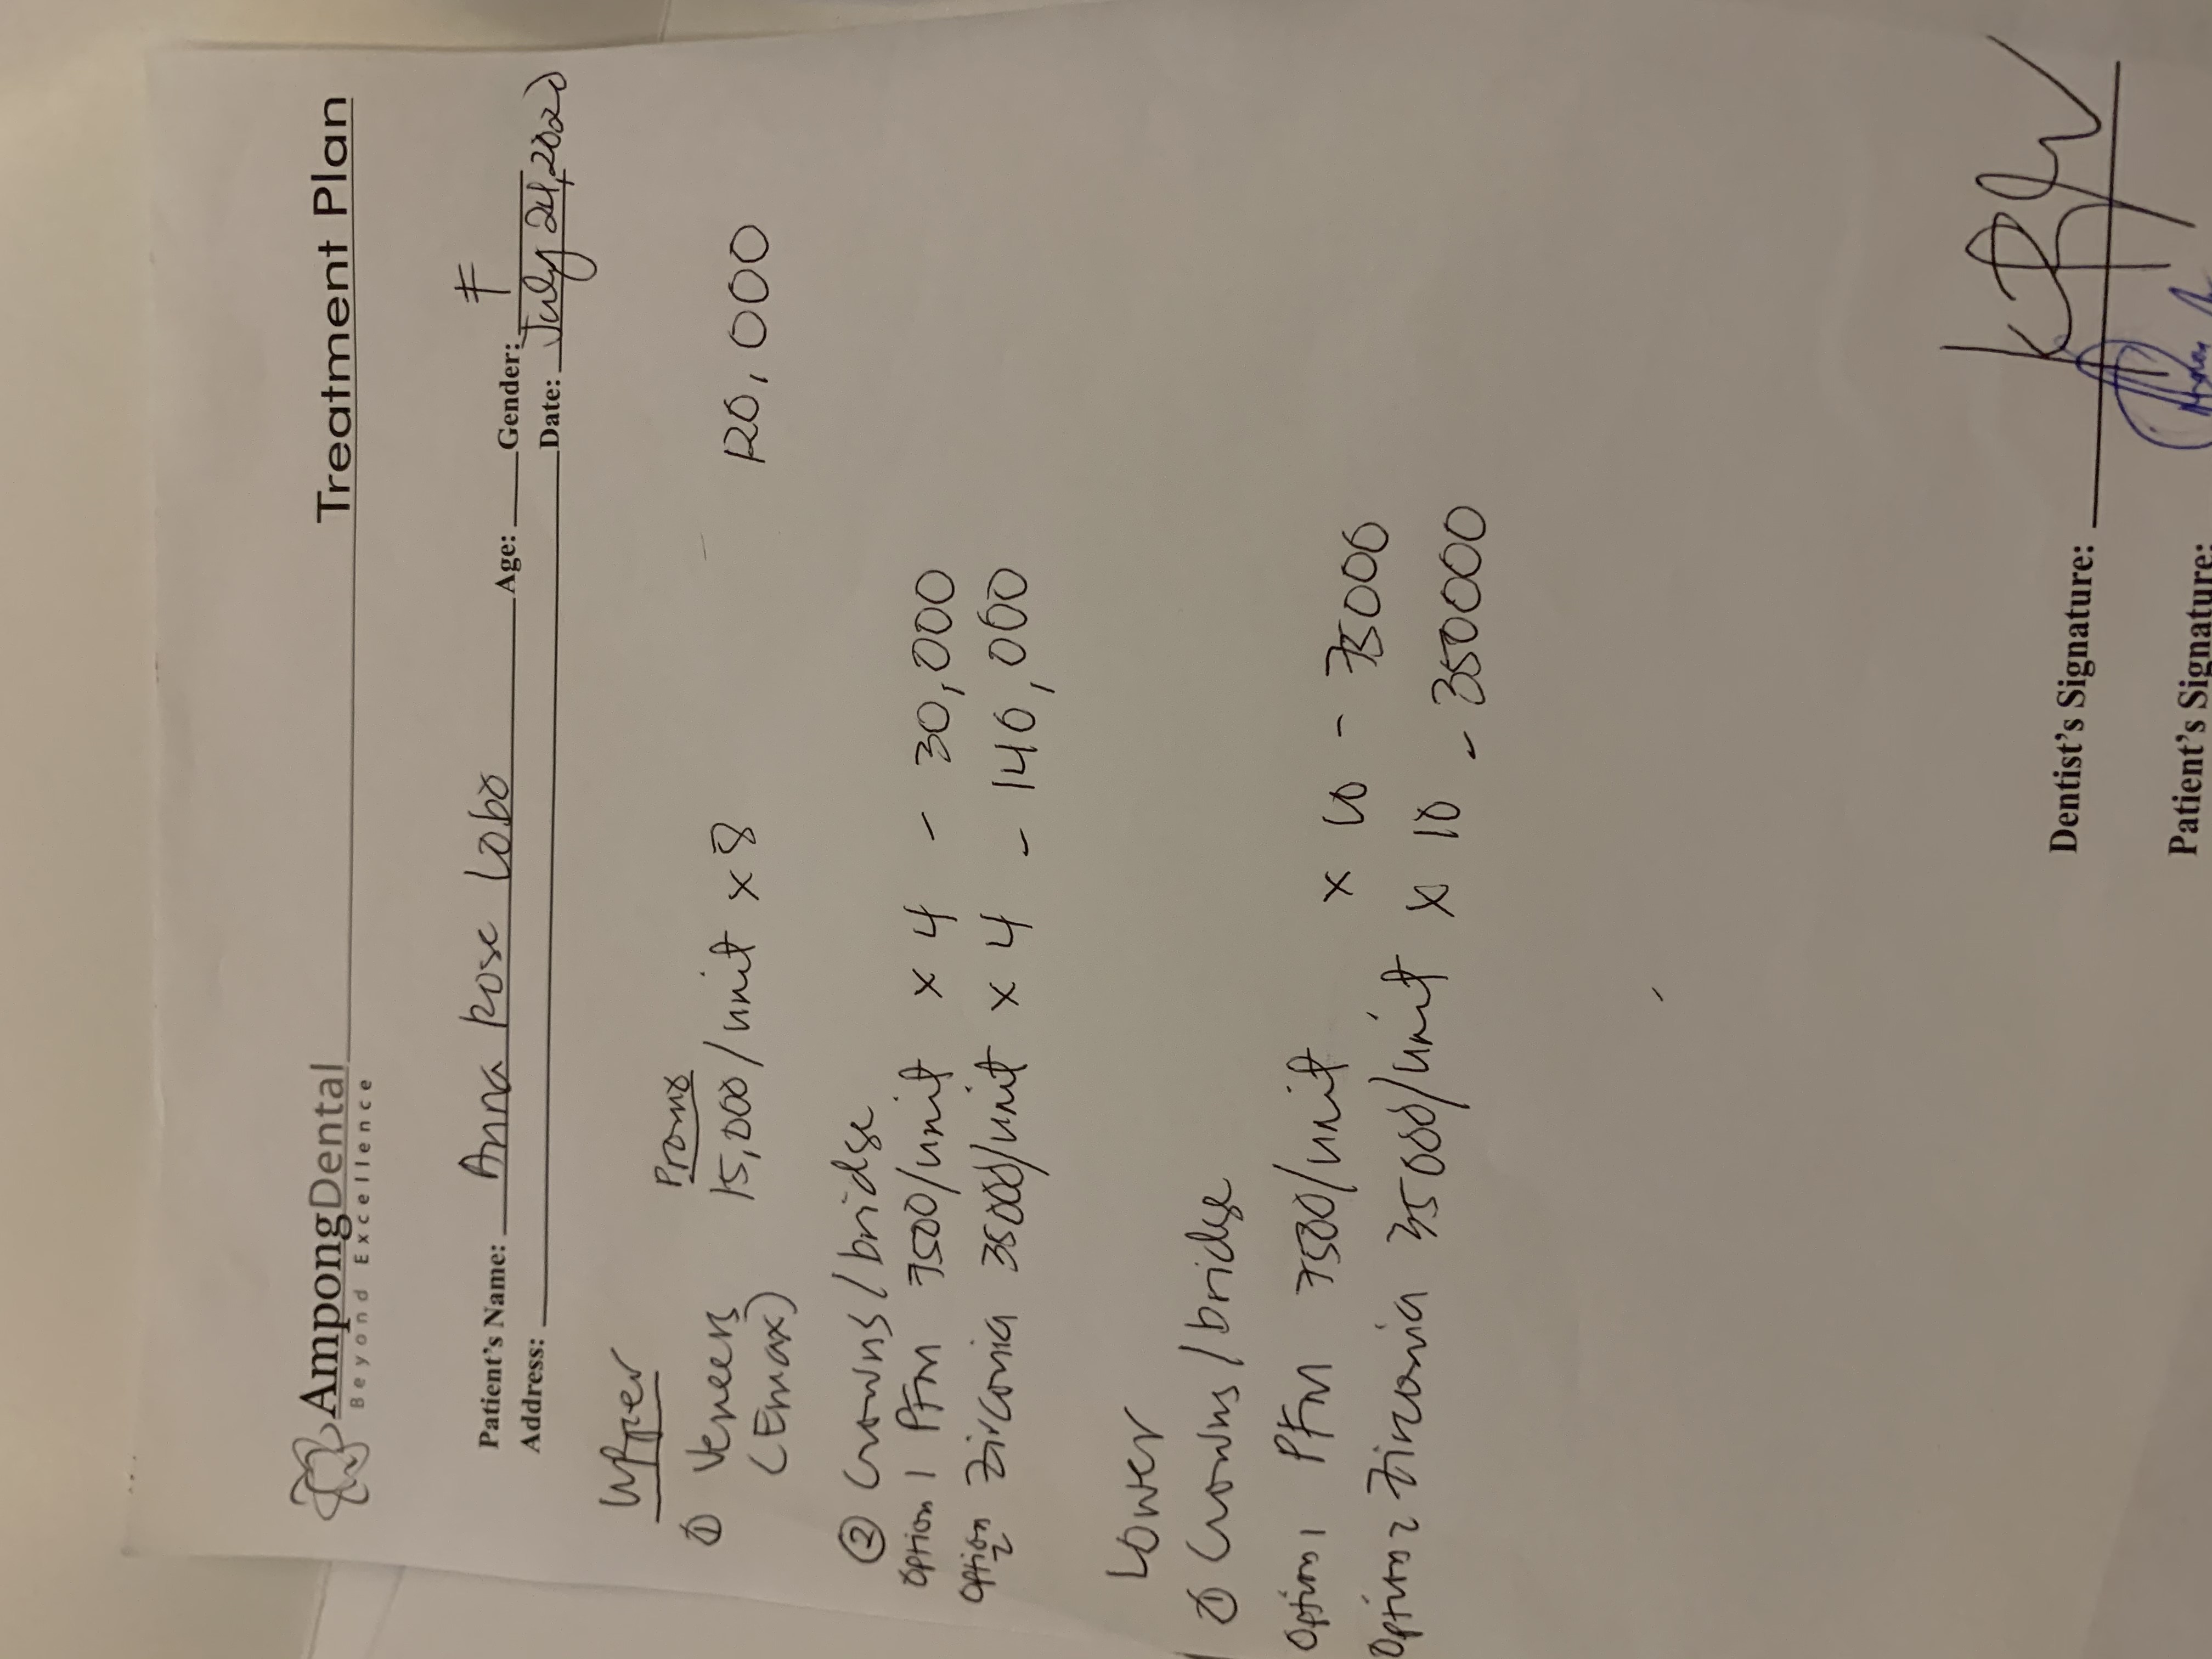 AmpongDental
Beyond Excellence
Treatment Plan
Patient's Name: Anna Rose Lobo Age: Gender: F
Address: Date: July 24, 2020
Upper
Promo
① Veneers 15,000/unit x 8 - 120,000
(Emax)
② Crowns/bridge
Option 1 PFM 7500/unit x 4 - 30,000
Option 2 Zirconia 35000/unit x 4 - 140,000
Lower
① Crowns/bridge
Option 1 PFM 7500/unit x 10 - 75000
Option 2 Zirconia 35000/unit x 10 - 350000
Dentist's Signature:
Patient's Signature: